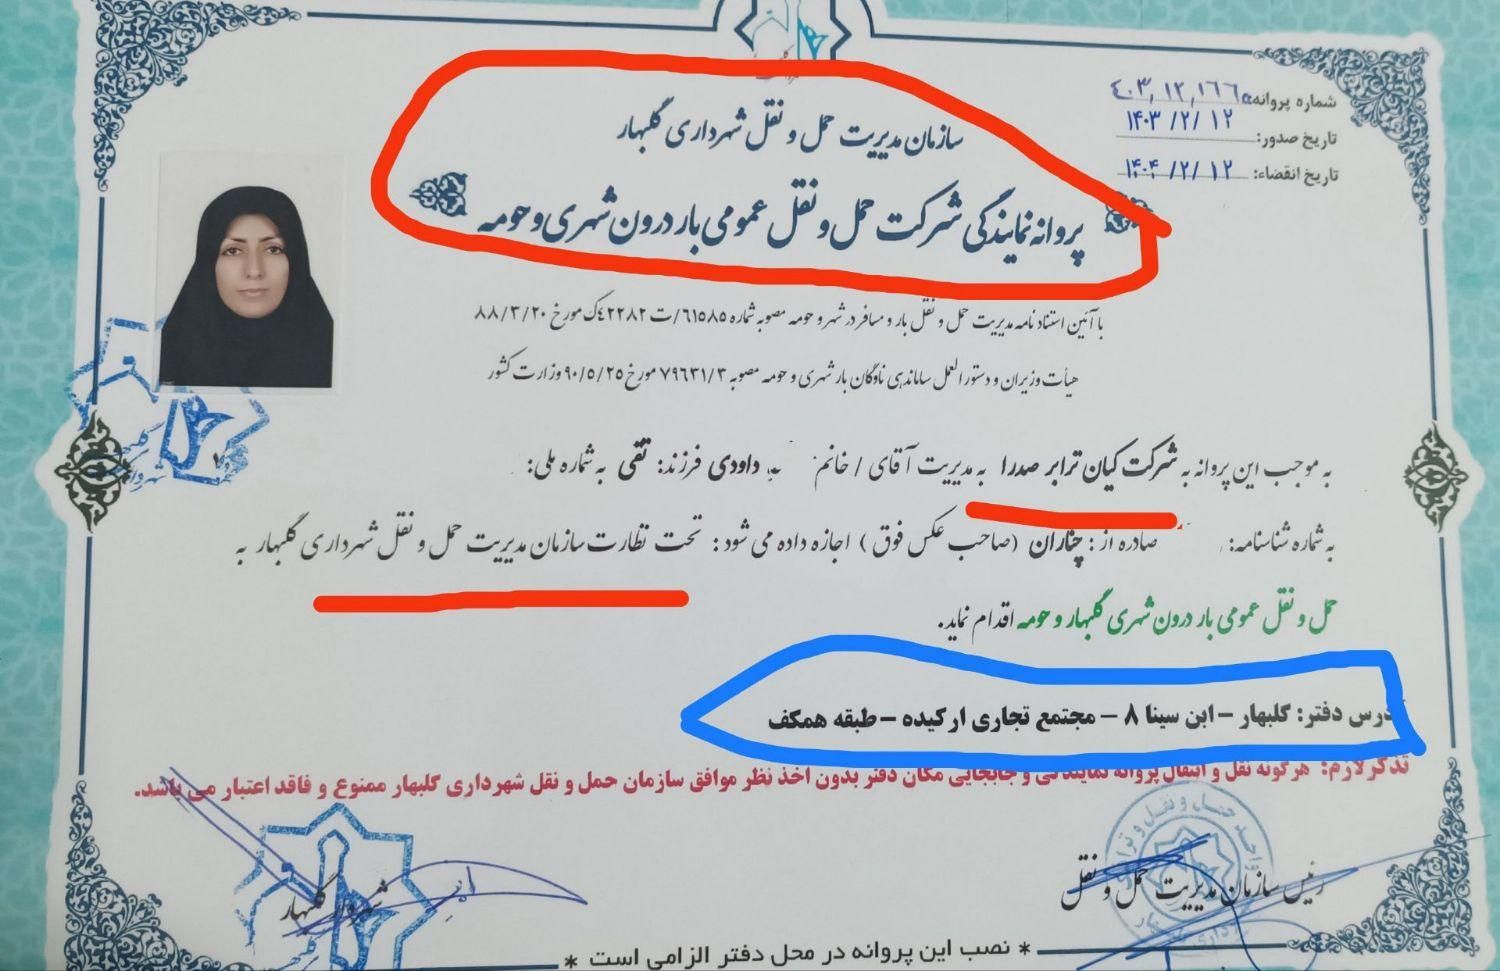 شماره پروانه: ٤٠٣,١٢,١٦٦٥
تاریخ صدور: ۱۴۰۳/۲/۱۲
تاریخ انقضاء: ۱۴۰۴/۲/۱۲
سازمان مدیریت حمل و نقل شهرداری گلبهار
پروانه نمایندگی شرکت حمل و نقل عمومی بار درون شهری و حومه
با آئین استناد نامه مدیریت حمل و نقل بار و مسافر در شهر و حومه مصوبه شماره ۶۱۵۸۵/ت ۴۲۲۸۲ک مورخ ۸۸/۳/۲۰
هیأت وزیران و دستور العمل ساماندهی ناوگان بار شهری و حومه مصوبه ۷۹۶۳۱/۳ مورخ ۹۰/۵/۲۵ وزارت کشور
به موجب این پروانه به شرکت کیان ترابر صدرا به مدیریت آقای / خانم داودی فرزند: تقی به شماره ملی:
به شماره شناسنامه: صادره از : چناران (صاحب عکس فوق ) اجازه داده می شود : تحت نظارت سازمان مدیریت حمل و نقل شهرداری گلبهار به
حمل و نقل عمومی بار درون شهری گلبهار و حومه اقدام نماید.
آدرس دفتر: گلبهار - ابن سینا ۸ - مجتمع تجاری ارکیده - طبقه همکف
تذکر لازم: هرگونه نقل و انتقال پروانه نمایندگی و جابجایی مکان دفتر بدون اخذ نظر موافق سازمان حمل و نقل شهرداری گلبهار ممنوع و فاقد اعتبار می باشد.
رئیس سازمان مدیریت حمل و نقل
شهردار گلبهار
* نصب این پروانه در محل دفتر الزامی است *